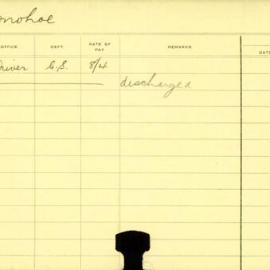 onohoe
OFFICE. DEPT. RATE OF PAY REMARKS DAT
Driver C.S. 8/4
discharged